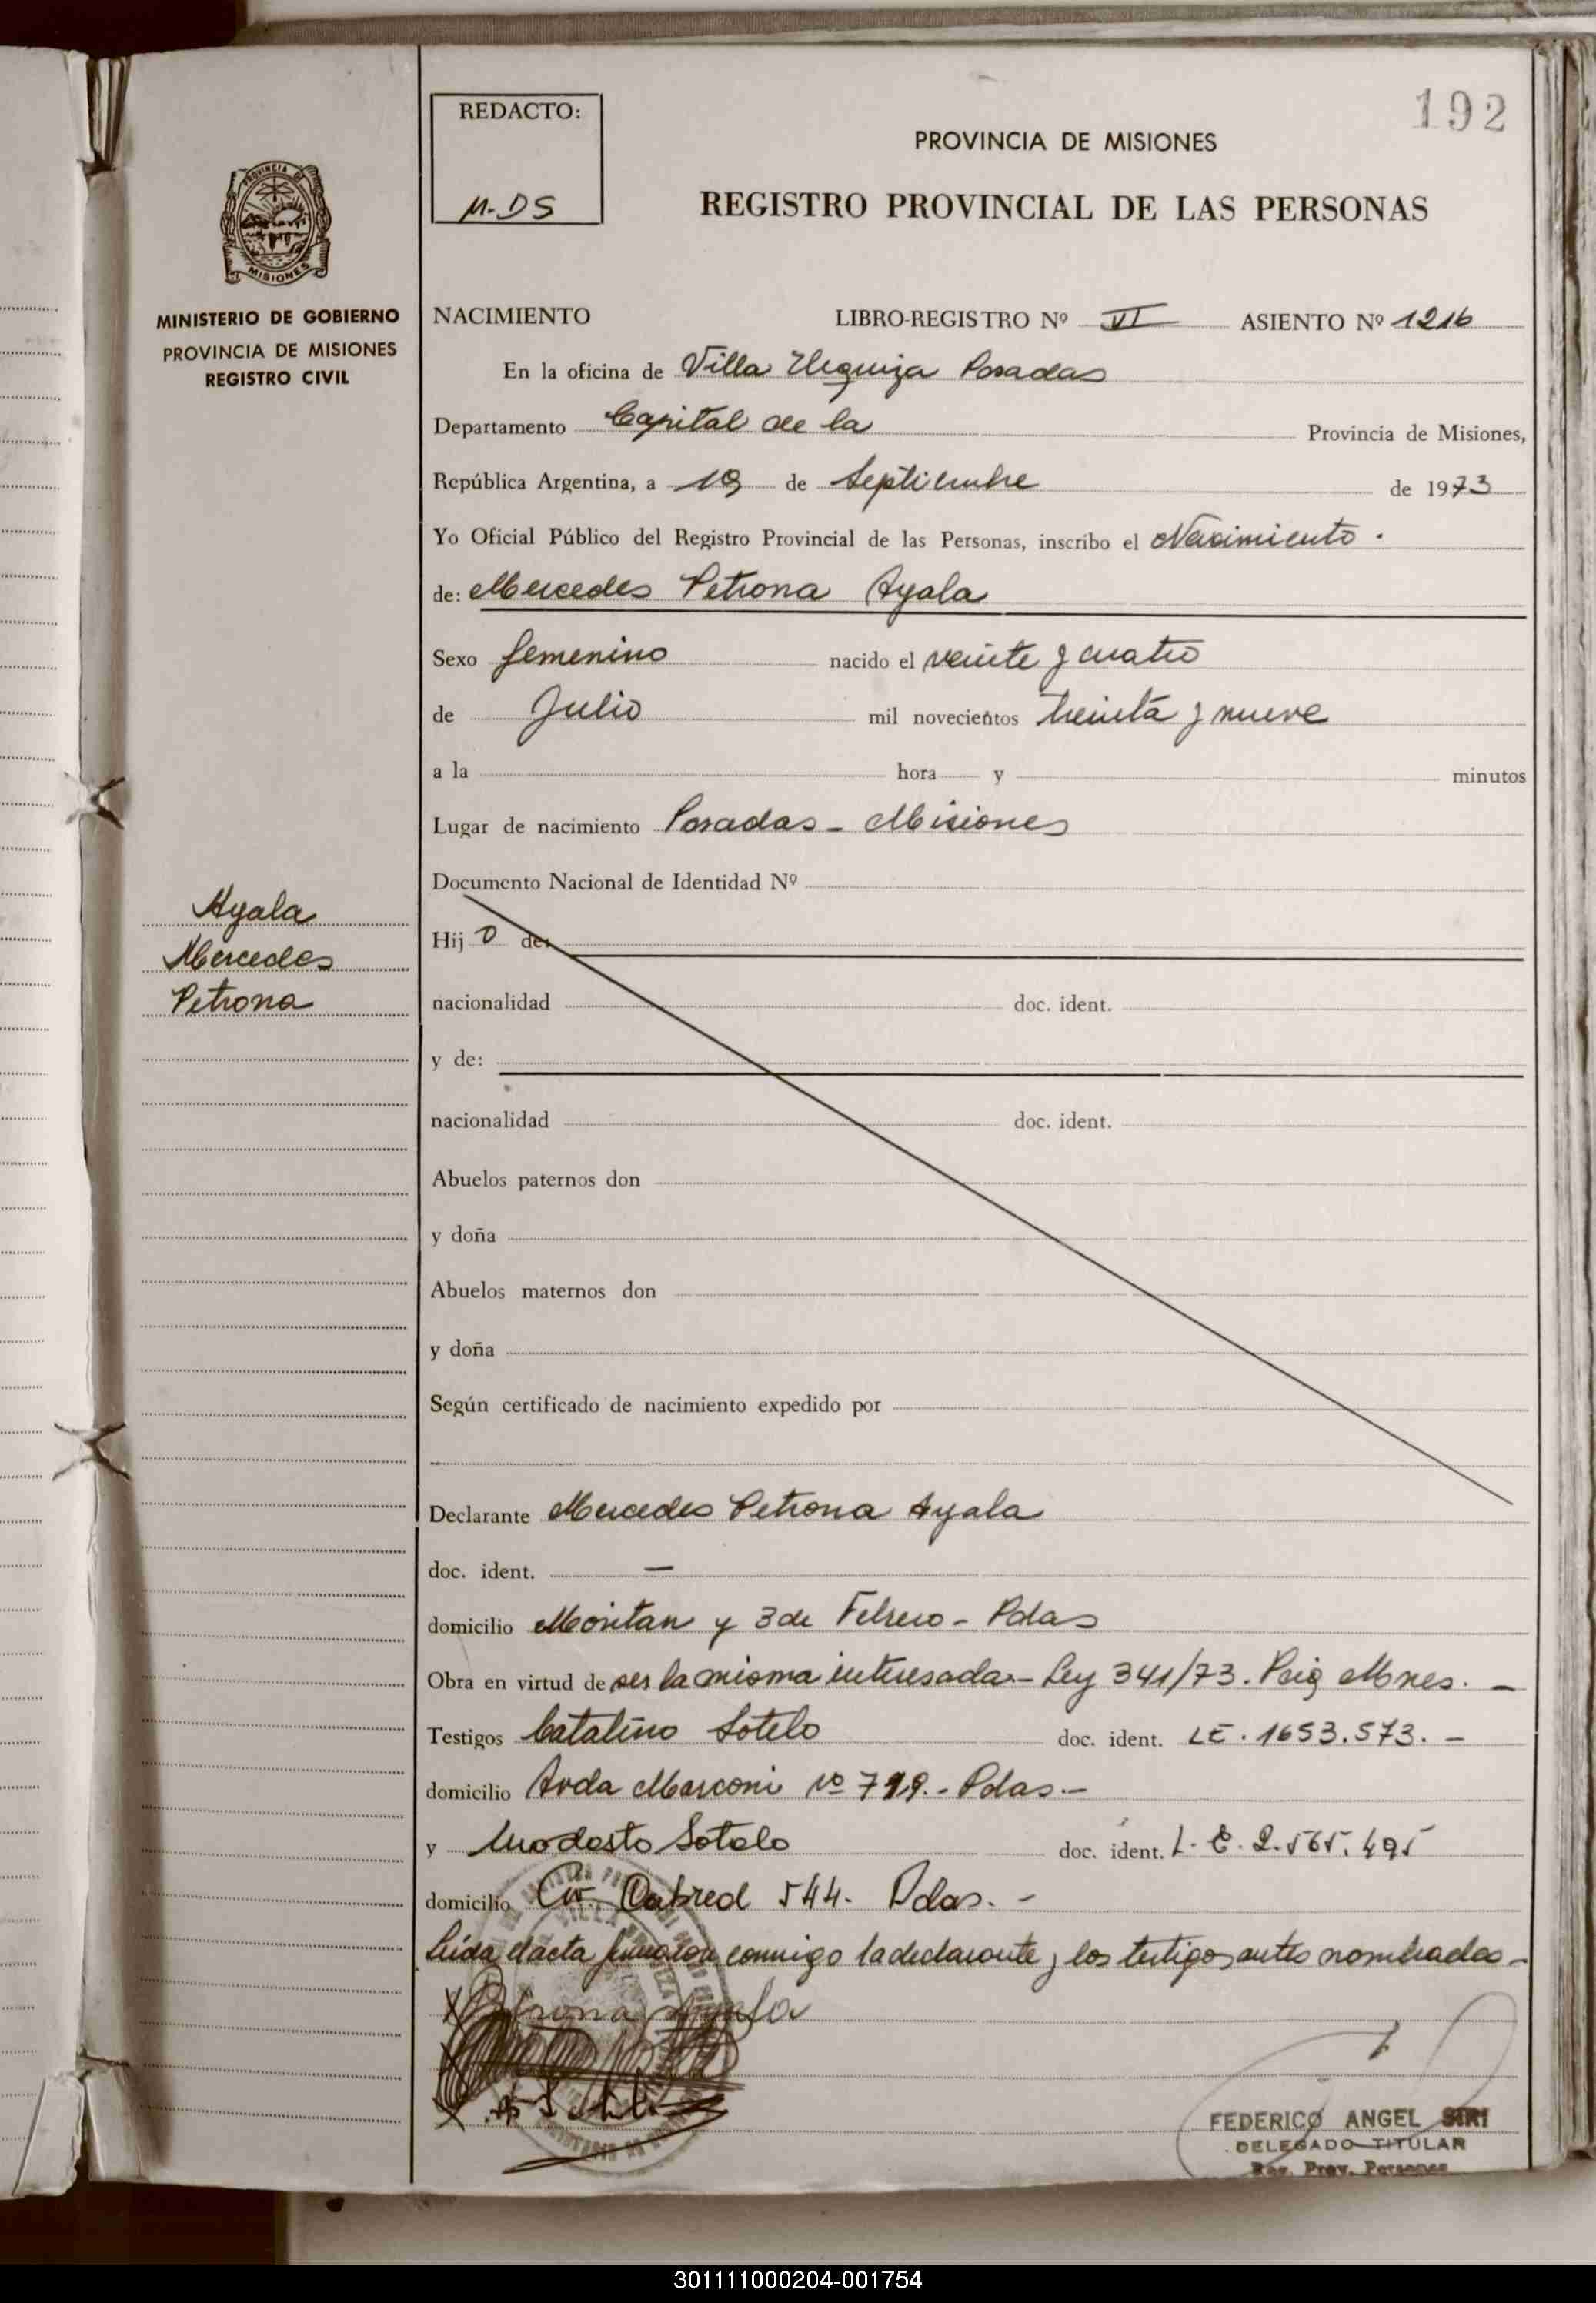 192
REDACTO:
M-DS
PROVINCIA DE MISIONES
REGISTRO PROVINCIAL DE LAS PERSONAS
PROVINCIA
MISIONES
MINISTERIO DE GOBIERNO
PROVINCIA DE MISIONES
REGISTRO CIVIL
NACIMIENTO LIBRO-REGISTRO Nº VI ASIENTO Nº 1216
En la oficina de Villa Urquiza Posadas
Departamento Capital de la Provincia de Misiones,
República Argentina, a 19 de Septiembre de 1973
Yo Oficial Público del Registro Provincial de las Personas, inscribo el Nacimiento.
de: Mercedes Petrona Ayala
Sexo femenino nacido el veinte y cuatro
de Julio mil novecientos treinta y nueve
a la hora y minutos
Lugar de nacimiento Posadas - Misiones
Documento Nacional de Identidad Nº
Ayala
Mercedes
Petrona
Hij o de:
nacionalidad doc. ident.
y de:
nacionalidad doc. ident.
Abuelos paternos don
y doña
Abuelos maternos don
y doña
Según certificado de nacimiento expedido por
Declarante Mercedes Petrona Ayala
doc. ident. —
domicilio Moritan y 3 de Febrero - Pdas
Obra en virtud de ser la misma interesada.- Ley 341/73. Mnes. -
Testigos Catalino Sotelo doc. ident. LE. 1653.573. -
domicilio Avda Marconi Nº 799.- Pdas.-
y Modesto Sotelo doc. ident. L. E. 2.565.495
domicilio Av. Cabred 544. Pdas. -
Leída el acta firmaron conmigo la declarante y los testigos antes nombrados -
Petrona Ayala
FEDERICO ANGEL SIRI
DELEGADO TITULAR
Reg. Prov. Personas
301111000204-001754